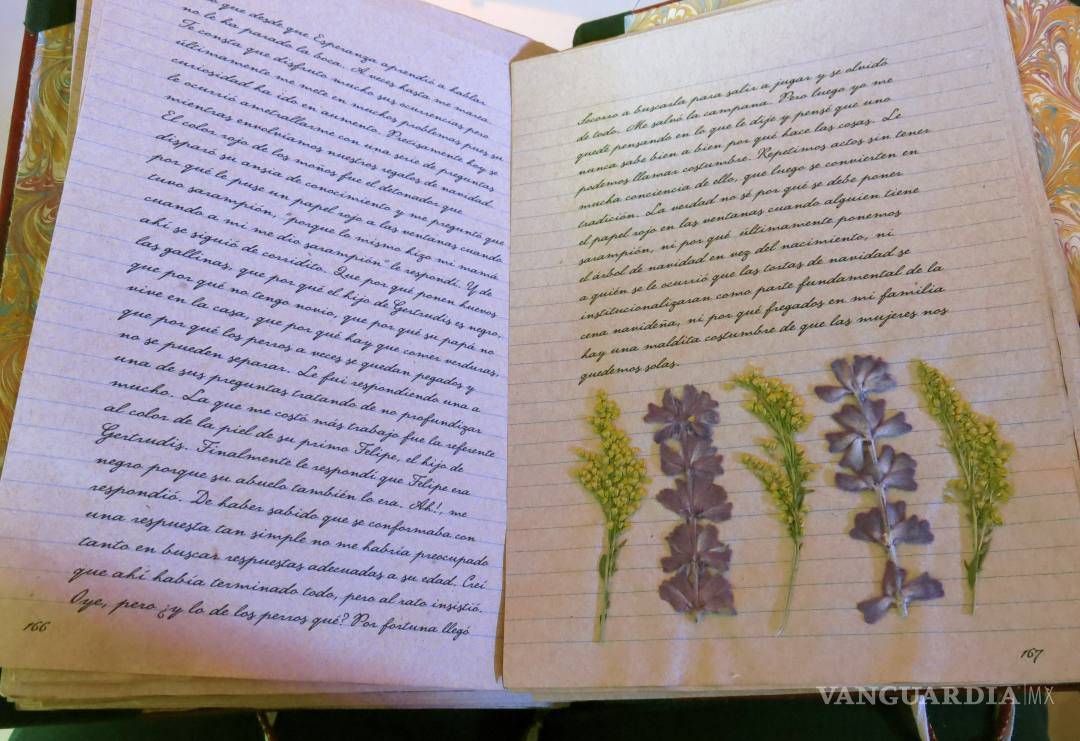 que desde que Esperanza aprendió a hablar
no le ha parado la boca. A veces hasta me marea.
Te consta que disfruto mucho sus ocurrencias pero
últimamente me mete en muchos problemas pues su
curiosidad ha ido en aumento. Precisamente hoy se
le ocurrió ametrallarme con una serie de preguntas
mientras envolvíamos nuestros regalos de navidad.
El color rojo de los moños fue el detonador que
disparó su ansia de conocimiento y me preguntó que
por qué le puse un papel rojo a las ventanas cuando
tuvo sarampión, "porque lo mismo hizo mi mamá
cuando a mí me dio sarampión" le respondí. Y de
ahí se siguió de corridito. Que por qué ponen huevos
las gallinas, que por qué el hijo de Gertrudis es negro,
que por qué no tengo novio, que por qué su papá no
vive en la casa, que por qué hay que comer verduras,
que por qué los perros a veces se quedan pegados y
no se pueden separar. Le fui respondiendo una a
una de sus preguntas tratando de no profundizar
mucho. La que me costó más trabajo fue la referente
al color de la piel de su primo Felipe, el hijo de
Gertrudis. Finalmente le respondí que Felipe era
negro porque su abuelo también lo era. Ah!, me
respondió. De haber sabido que se conformaba con
una respuesta tan simple no me habría preocupado
tanto en buscar respuestas adecuadas a su edad. Creí
que ahí había terminado todo, pero al rato insistió.
Oye, pero ¿y lo de los perros qué? Por fortuna llegó
166
Socorro a buscarla para salir a jugar y se olvidó
de todo. Me salvó la campana. Pero luego yo me
quedé pensando en lo que le dije y pensé que uno
nunca sabe bien a bien por qué hace las cosas. Le
podemos llamar costumbre. Repetimos actos sin tener
mucha conciencia de ello, que luego se convierten en
tradición. La verdad no sé por qué se debe poner
el papel rojo en las ventanas cuando alguien tiene
sarampión, ni por qué últimamente ponemos
el árbol de navidad en vez del nacimiento, ni
a quién se le ocurrió que las tortas de navidad se
institucionalizaran como parte fundamental de la
cena navideña, ni por qué fregados en mi familia
hay una maldita costumbre de que las mujeres nos
quedemos solas.
167
VANGUARDIA|MX